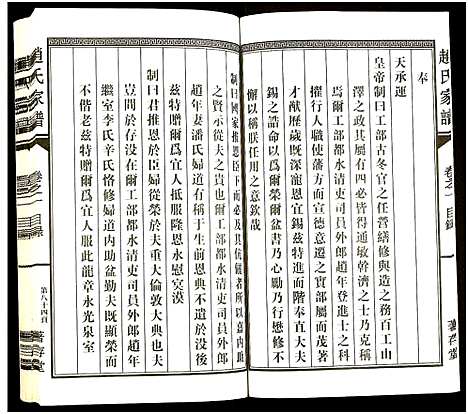 趙氏家譜
卷之一 目錄
奉
天承運
皇帝制曰工部古冬官之任營繕修與造之務百工山
澤之政其屬有四必皆得通敏幹濟之士乃克稱
焉爾工部都水清吏司員外郎趙年登進士之科
擢行人職使藩方而宣德意遵之嚮屬而茂著
才猷歷歲既深眷宜錫茲特進而階奉直大夫
錫之誥命以爲爾榮爾益書乃心勵乃行懋修不
懈以稱朕任用之意欽哉
制曰國家推恩臣下而必及其伉儷者所以嘉內助
之賢示從人之義也爾工部都水清吏司員外郎
趙年妻潘氏婦道有稱于生前恩典不遺於沒後
茲特贈爾爲宜人服此隆恩永慰冥漠
制曰君推恩於臣婦從榮於夫重大倫敦大典也夫
豈間於存沒在爾工部都水清吏司員外郎趙年
繼室李氏辛氏恪修婦道內助盆勤夫既顯榮而
不偕老茲特贈爾爲宜人服此龍章永光泉室
趙氏家譜
卷之一 目錄
第八十四頁